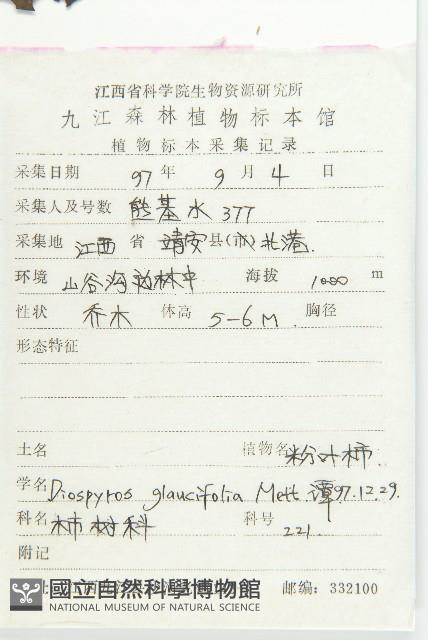 江西省科学院生物资源研究所
九江森林植物标本馆
植物标本采集记录
采集日期 97 年 9 月 4 日
采集人及号数 熊基水 377
采集地 江西 省 靖安 县(市) 北港.
环境 山谷沟边林中 海拔 1000 m
性状 乔木 体高 5-6M. 胸径
形态特征
土名 植物名 粉叶柿.
学名 Diospyros glaucifolia Mett. 谭97.12.29.
科名 柿树科 科号 221.
附记
邮编: 332100
國立自然科學博物館
NATIONAL MUSEUM OF NATURAL SCIENCE